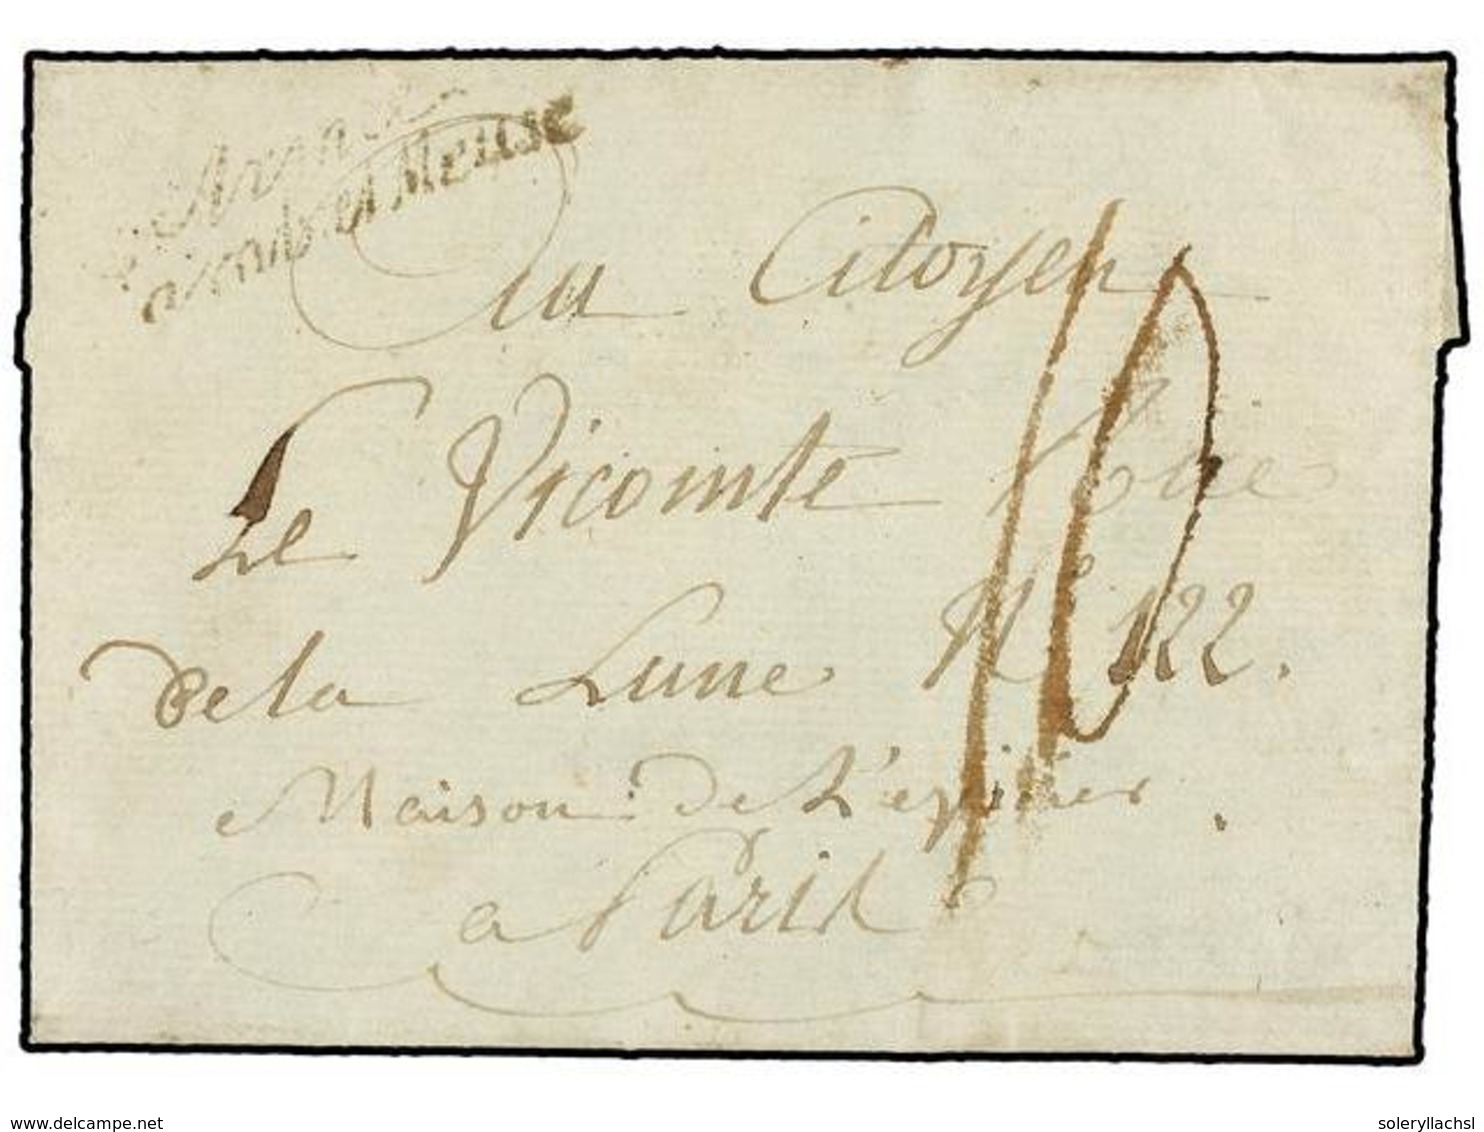 Armée
Sambre et Meuse
Au Citoyen
Le Vicomte Rue
De la Lune N° 122.
Maison De L'epicier
a Paris
10
delcampe.net
soleryllachsl